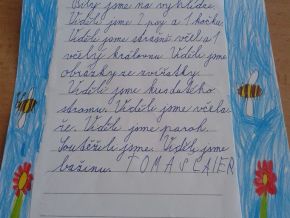 Byli jsme na vyhlídce.
Viděli jsme 2 psy a 1 kočku.
Viděli jsme strašně včel a 1
včelí královnu. Viděli jsme
obrázky se zvířátky.
Viděli jsme kus dutého
stromu. Viděli jsme včela
ře. Viděli jsme paroh.
Soutěžili jsme. Viděli jsme
bažinu. TOMAS